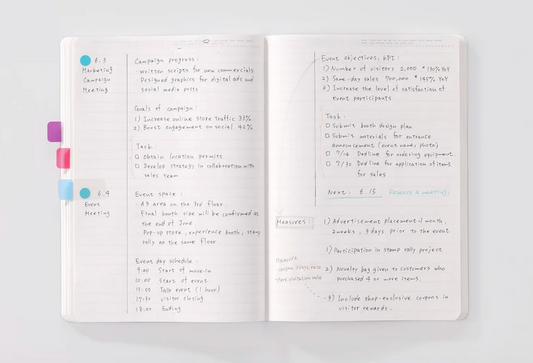 6.3
Marketing
Campaign
Meeting
Campaign progress:
written scripts for new commercials
Designed graphics for digital ads and
social media posts
Goals of campaign:
1) Increase online store traffic 33%
2) Boost engagement on social 42%
Task:
Obtain location permits
Develop strategy in collaboration with
sales team
6.4
Event
Meeting
Event space:
A3 area on the 3rd floor.
Final booth size will be confirmed at
the end of June.
Pop-up store, experience booth, stamp
rally on the same floor.
Event day schedule:
9:00 Start of move-in
10:00 Start of event
Talk event (1 hour)
17:30 visitor closing
18:00 Ending
Event objectives, KPI:
1) Number of visitors 2,000 *130% YoY
2) Same-day sales *145% YoY
3) Increase the level of satisfaction of
event participants
Task:
Submit booth design plan
Submit materials for entrance
announcement (event name, photo)
7/16 Deadline for ordering equipment
7/30 Deadline for application of items
for sales
Next: 6.15
meeting
Measures:
1) Advertisement placement 1 month,
2 weeks, 3 days prior to the event
1) Participation in stamp rally project
2) Novelty bag given to customers who
purchased 4 or more items.
3) Include shop-exclusive coupons in
visitor rewards.
Measure